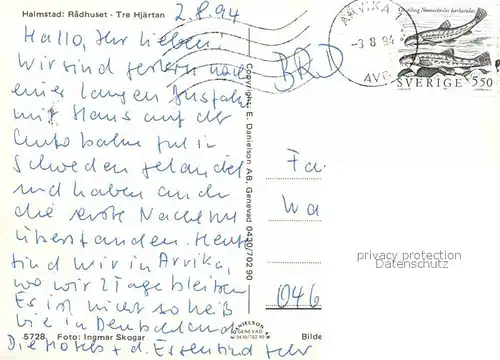 Halmstad: Rådhuset - Tre Hjärtan
2.8.94
Hallo, Ihr Lieben!
Wir sind gestern nach
einer langen Busfahrt
mit Haus auf der
Autobahn gut in
Schweden gelandet
und haben auch
die erste Nacht gut
überstanden. Heute
sind wir in Arvika,
wo wir 2 Tage bleiben
Es ist nicht so heiß
wie in Deutschland
Die Hotels + d. Essen sind sehr
5728 Foto: Ingmar Skogar
Copyright: E. Danielson AB, Genevad 0430/702 90
DANIELSON
GENEVAD
0430/702 90
Bilde
BRD
ARVIKA 1
-3 8 94
AVG
SVERIGE 5.50
Fa
Wa
046
privacy protection
Datenschutz